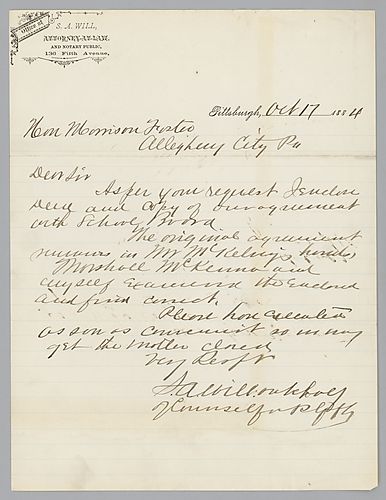 Office of
S. A. WILL,
ATTORNEY-AT-LAW,
AND NOTARY PUBLIC,
136 Fifth Avenue,
Pittsburgh, Oct 17 1884
Hon Morrison Foster
Allegheny City Pa
Dear Sir
As per your request I enclose
Deed and Copy of our agreement
with School Board
The original agreement
remains in Mr McKelvys hands
Marshall McKenna and
myself examined the enclosed
and find correct.
Please have executed
as soon as convenient so we may
get the matter closed
Very Respt
S. A. Will
of Counsel